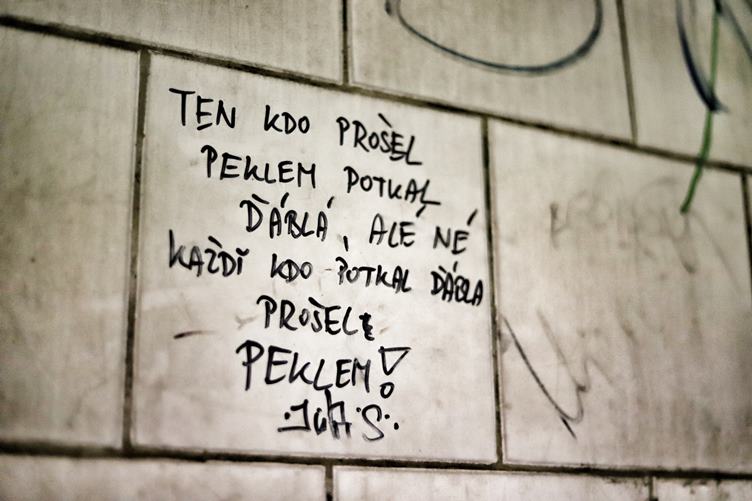 TEN KDO PROŠEL
PEKLEM POTKAL
ĎÁBLÁ, ALÉ NÉ
KAŽDÍ KDO POTKAL ĎÁBLA
PROŠEL
PEKLEM!